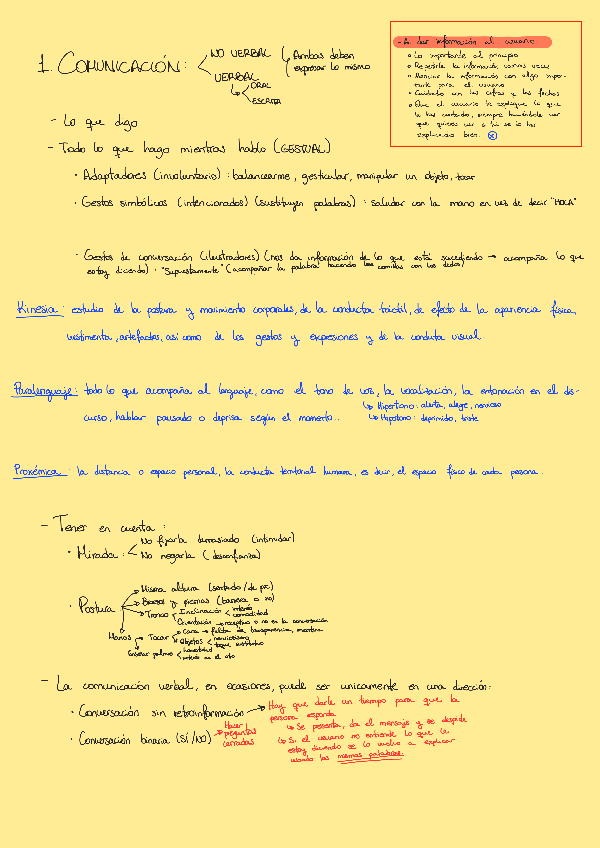 1. COMUNICACIÓN:
NO VERBAL
VERBAL
ORAL
ESCRITA
Ambas deben
expresar lo mismo
- A dar información al usuario
• Lo importante al principio
• Repetirle la información varias veces
• Mencionar la información con algo impor-
tante para el usuario
• Cuidado con las cifras y las fechas
• Que el usuario te explique lo que
le has contado, siempre haciéndole ver
que quieres ver si tú se lo has
explicado bien.
- Lo que digo
- Todo lo que hago mientras hablo (GESTUAL)
• Adaptadores (involuntario): balancearme, gesticular, manipular un objeto, tocar
• Gestos simbólicos (intencionados) (sustituyen palabras): saludar con la mano en vez de decir "HOLA"
• Gestos de conversación (ilustradores) (nos da información de lo que está sucediendo → acompaña lo que
estoy diciendo). "Supuestamente" (acompañar la palabra haciendo las comillas con los dedos)
Kinesia: estudio de la postura y movimiento corporales, de la conducta táctil, de efecto de la apariencia física,
vestimenta, artefactos, así como de los gestos y expresiones y de la conducta visual.
Paralenguaje: todo lo que acompaña al lenguaje, como el tono de voz, la vocalización, la entonación en el dis-
curso, hablar pausado o deprisa según el momento..
↳ Hipertono: alerta, alegre, nervioso
↳ Hipotono: deprimido, triste
Proxémica: la distancia o espacio personal, la conducta territorial humana, es decir, el espacio físico de cada persona.
- Tener en cuenta:
• Mirada:
No fijarla demasiado (intimidar)
No negarla (desconfianza)
• Postura
Misma altura (sentado/de pie)
Brazos y piernas (barrera o no)
Tronco
Inclinación
interés
comodidad
Orientación → receptivo o no en la conversación
Manos → Tocar
Cara → falta de transparencia, mentira
Objetos
nerviosismo
toque sustitutivo
Enseñar palmas
honestidad
interés en el otro
- La comunicación verbal, en ocasiones, puede ser unicamente en una dirección:
• Conversación sin retroinformación → Hay que darle un tiempo para que la
persona responda
↳ Se presenta, da el mensaje y se despide
• Conversación binaria (SÍ/NO) → Hacer
preguntas
cerradas
↳ Si el usuario no entiende lo que le
estoy diciendo se lo vuelvo a explicar
usando las mismas palabras.